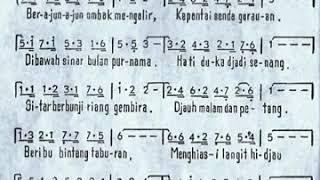 Ber-a-jun-a-jun ombak me-ngelir, Kapantai senda gurau-an.
5·i 7·i 5·3 1·6 | 5 - - - | 3·2 4·3 2·1 7·6 | i - - -
Dibawah sinar bulan pur-nama. Hati du-ka djadi se-nang.
i·i 1·2 3·2 1·6 | 5 - - - | 1·3 2·4 4·2 2·6 | 1 - - -
Si-tar berbunji riang gembira. Djauh malam dan pe-tang.
1·3 2·1 7·7 7·5 | 6 - - - | 6·6 4·2 7·6 5·4 | 5 - - -
Beribu bintang tabu-ran, Menghias-i langit hi-djau